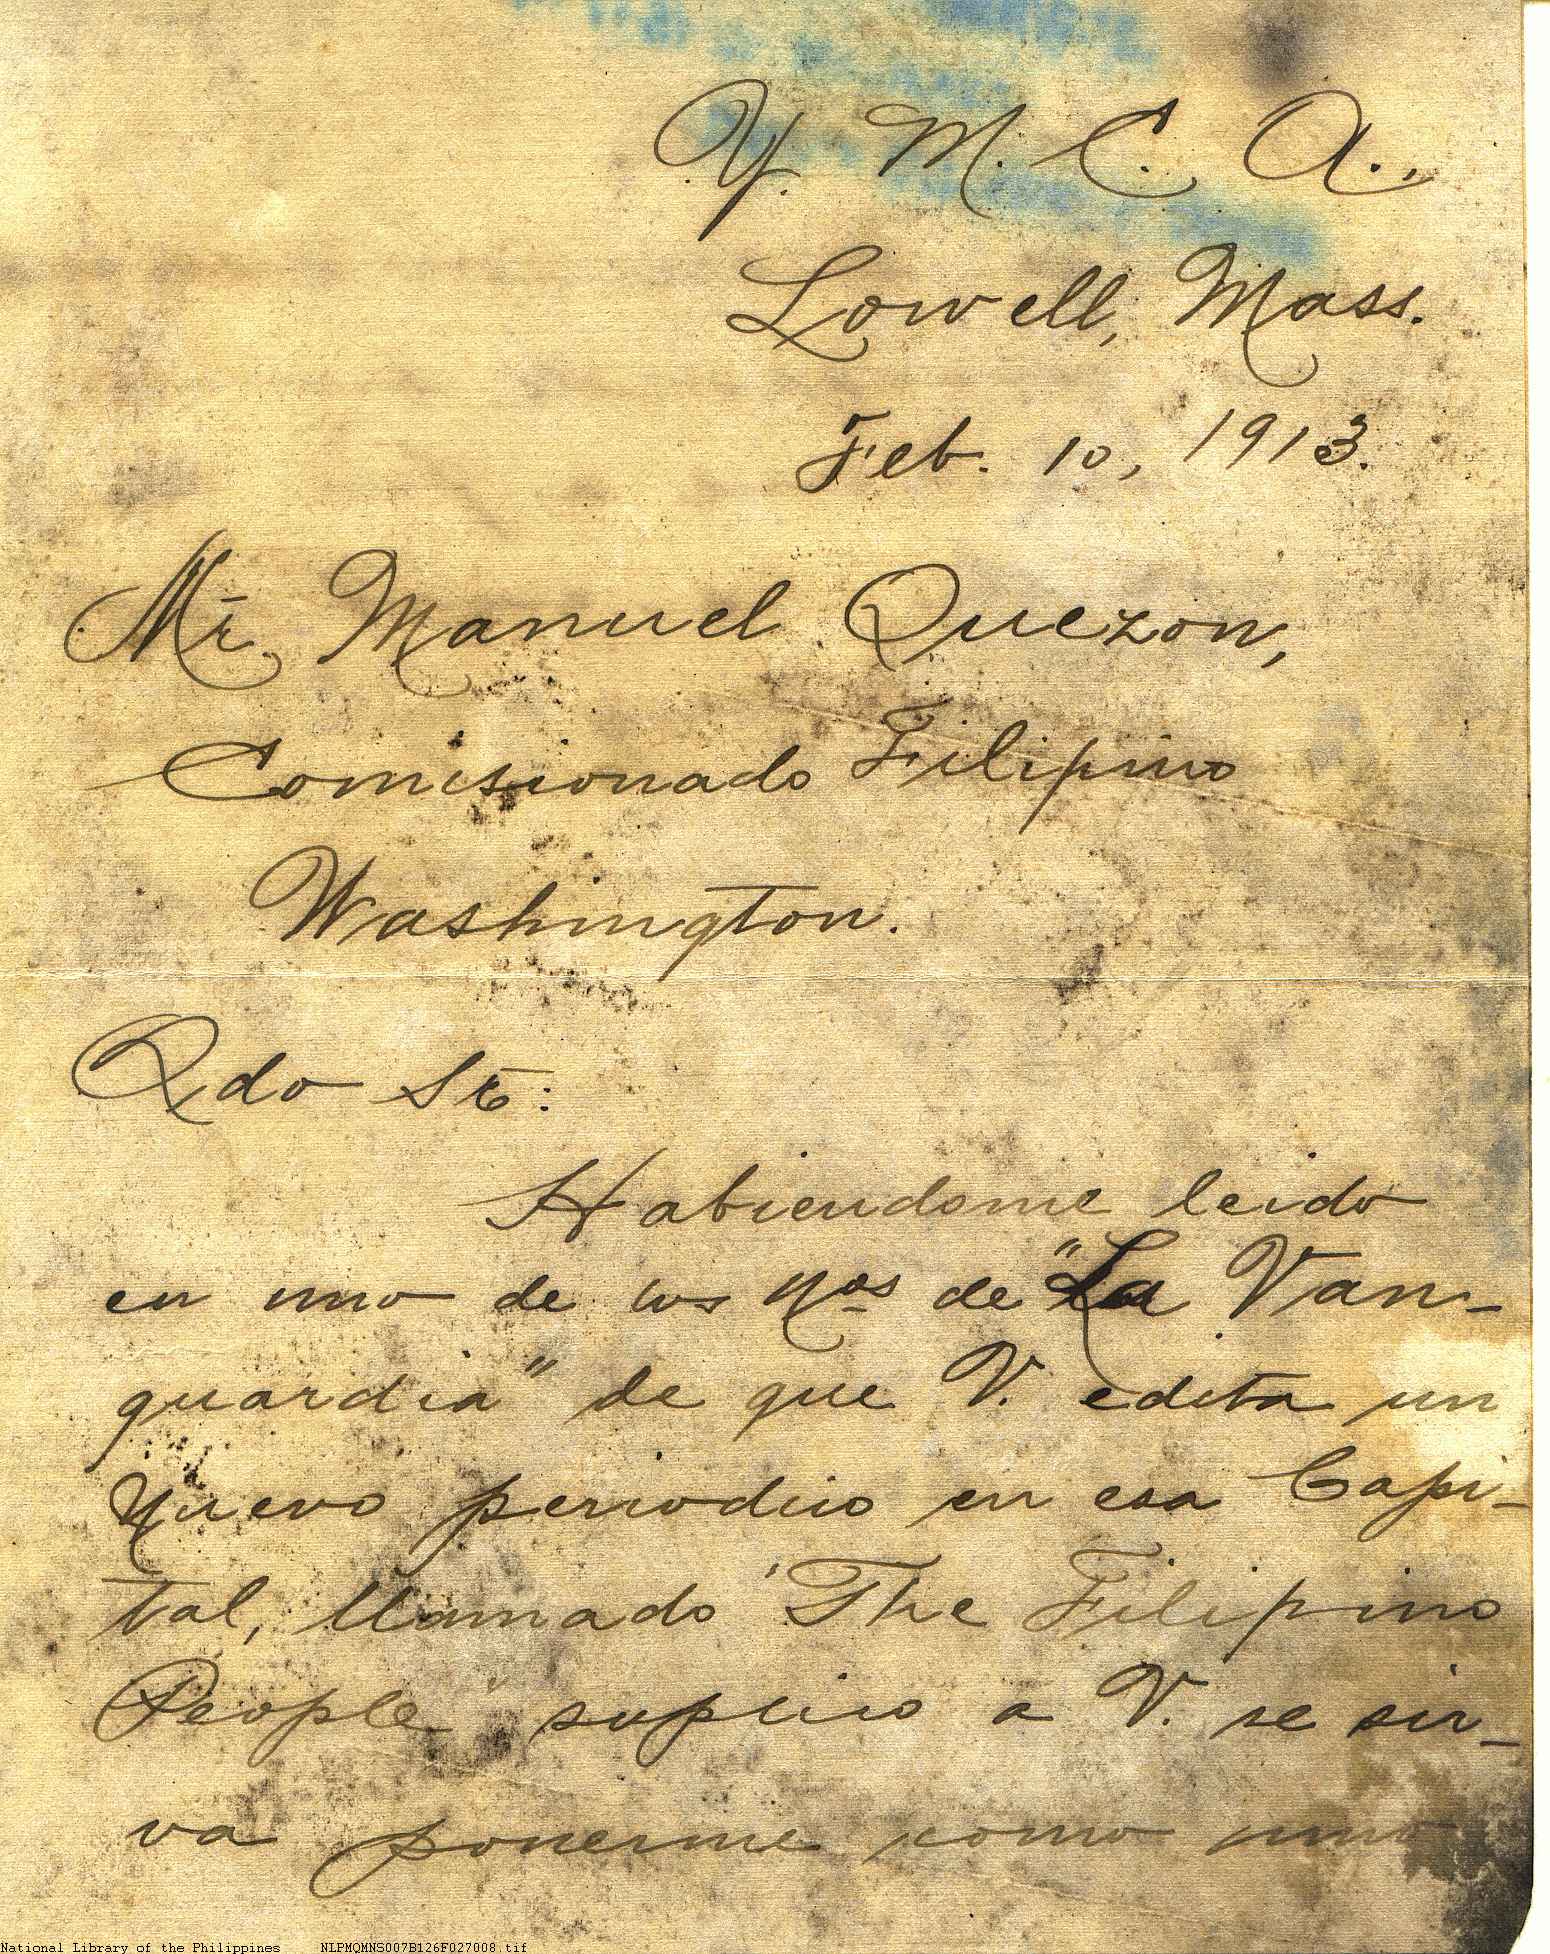 Y. M. C. A.,
Lowell, Mass.
Feb. 10, 1913.
Mr. Manuel Quezon,
Comisionado Filipino
Washington.
Qdo Sr:
Habiendome leido
en uno de los Nos de "La Van-
guardia" de que V. edita un
Nuevo periodico en esa Capi-
tal, llamado "The Filipino
People" suplico a V. se sir-
va ponerme como uno
National Library of the Philippines NLPMQMNS007B126F027008.tif